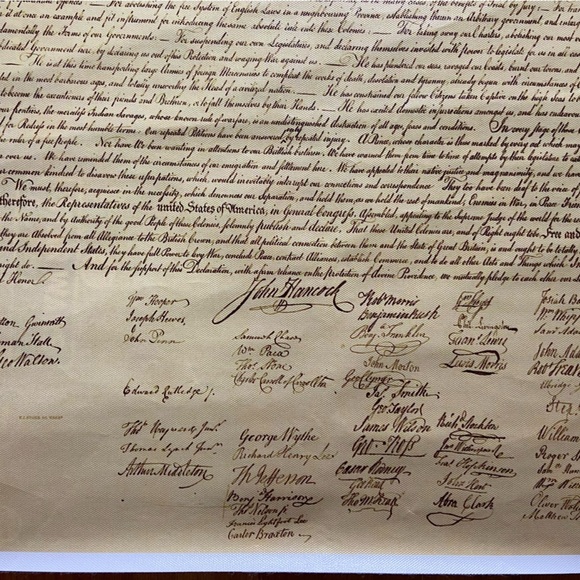 For abolishing the free System of English Laws in a neighbouring Province, establishing therein an Arbitrary government, and
so as to render it at once an example and fit instrument for introducing the same absolute rule into these Colonies: — For taking away our Charters, abolishing our most
fundamentally the Forms of our Governments: — For suspending our own Legislatures, and declaring themselves invested with power to legislate for us in all
abdicated Government here, by declaring us out of his Protection and waging War against us. — He has plundered our seas, ravaged our Coasts, burnt our towns, and
He is at this time transporting large Armies of foreign Mercenaries to compleat the works of death, desolation and tyranny, already begun with circumstances of
in the most barbarous ages, and totally unworthy the Head of a civilized nation. — He has constrained our fellow Citizens taken Captive on the high Seas to
to become the executioners of their friends and Brethren, or to fall themselves by their Hands. — He has excited domestic insurrections amongst us, and has
our frontiers, the merciless Indian Savages, whose known rule of warfare, is an undistinguished destruction of all ages, sexes and conditions. In every stage of these
for Redress in the most humble terms: Our repeated Petitions have been answered only by repeated injury. A Prince, whose character is thus marked by every act which may
ruler of a free people. Nor have We been wanting in attentions to our Brittish brethren. We have warned them from time to time of attempts by their legislature to
over us. We have reminded them of the circumstances of our emigration and settlement here. We have appealed to their native justice and magnanimity, and we have
our common kindred to disavow these usurpations, which, would inevitably interrupt our connections and correspondence They too have been deaf to the voice of
We must, therefore, acquiesce in the necessity, which denounces our Separation, and hold them, as we hold the rest of mankind, Enemies in War, in Peace
therefore, the Representatives of the united States of America, in General Congress, Assembled, appealing to the Supreme Judge of the world for the
the Name, and by Authority of the good People of these Colonies, solemnly publish and declare, That these United Colonies are, and of Right ought to be Free and
they are Absolved from all Allegiance to the British Crown, and that all political connection between them and the State of Great Britain, is and ought to be totally
and Independent States, they have full Power to levy War, conclude Peace, contract Alliances, establish Commerce, and to do all other Acts and Things which
right do. — And for the support of this Declaration, with a firm reliance on the Protection of divine Providence, we mutually pledge to each other our
Honor
John Hancock
Button Gwinnett
Lyman Hall
Geo Walton.
Wm Hooper
Joseph Hewes,
John Penn
Edward Rutledge /.
Thos Heyward Junr.
Thomas Lynch Junr.
Arthur Middleton
Samuel Chase
Wm Paca
Thos Stone
Charles Carroll of Carrollton
George Wythe
Richard Henry Lee
Th Jefferson
Benj Harrison
Thos Nelson jr.
Francis Lightfoot Lee
Carter Braxton
Robt Morris
Benjamin Rush
Benja Franklin
John Morton
Geo Clymer
Jas. Smith
Geo. Taylor
James Wilson
Geo. Ross
Caesar Rodney
Geo Read
Tho M:Kean
Wm Floyd
Phil. Livingston
Frans. Lewis
Lewis Morris
Richd. Stockton
Jno Witherspoon
Fras. Hopkinson
John Hart
Abra Clark
Josiah
Wm Whipple
Saml Adams
John
Robt Treat
Elbridge
Step.
William
Roger
Wm
Oliver
Matthew